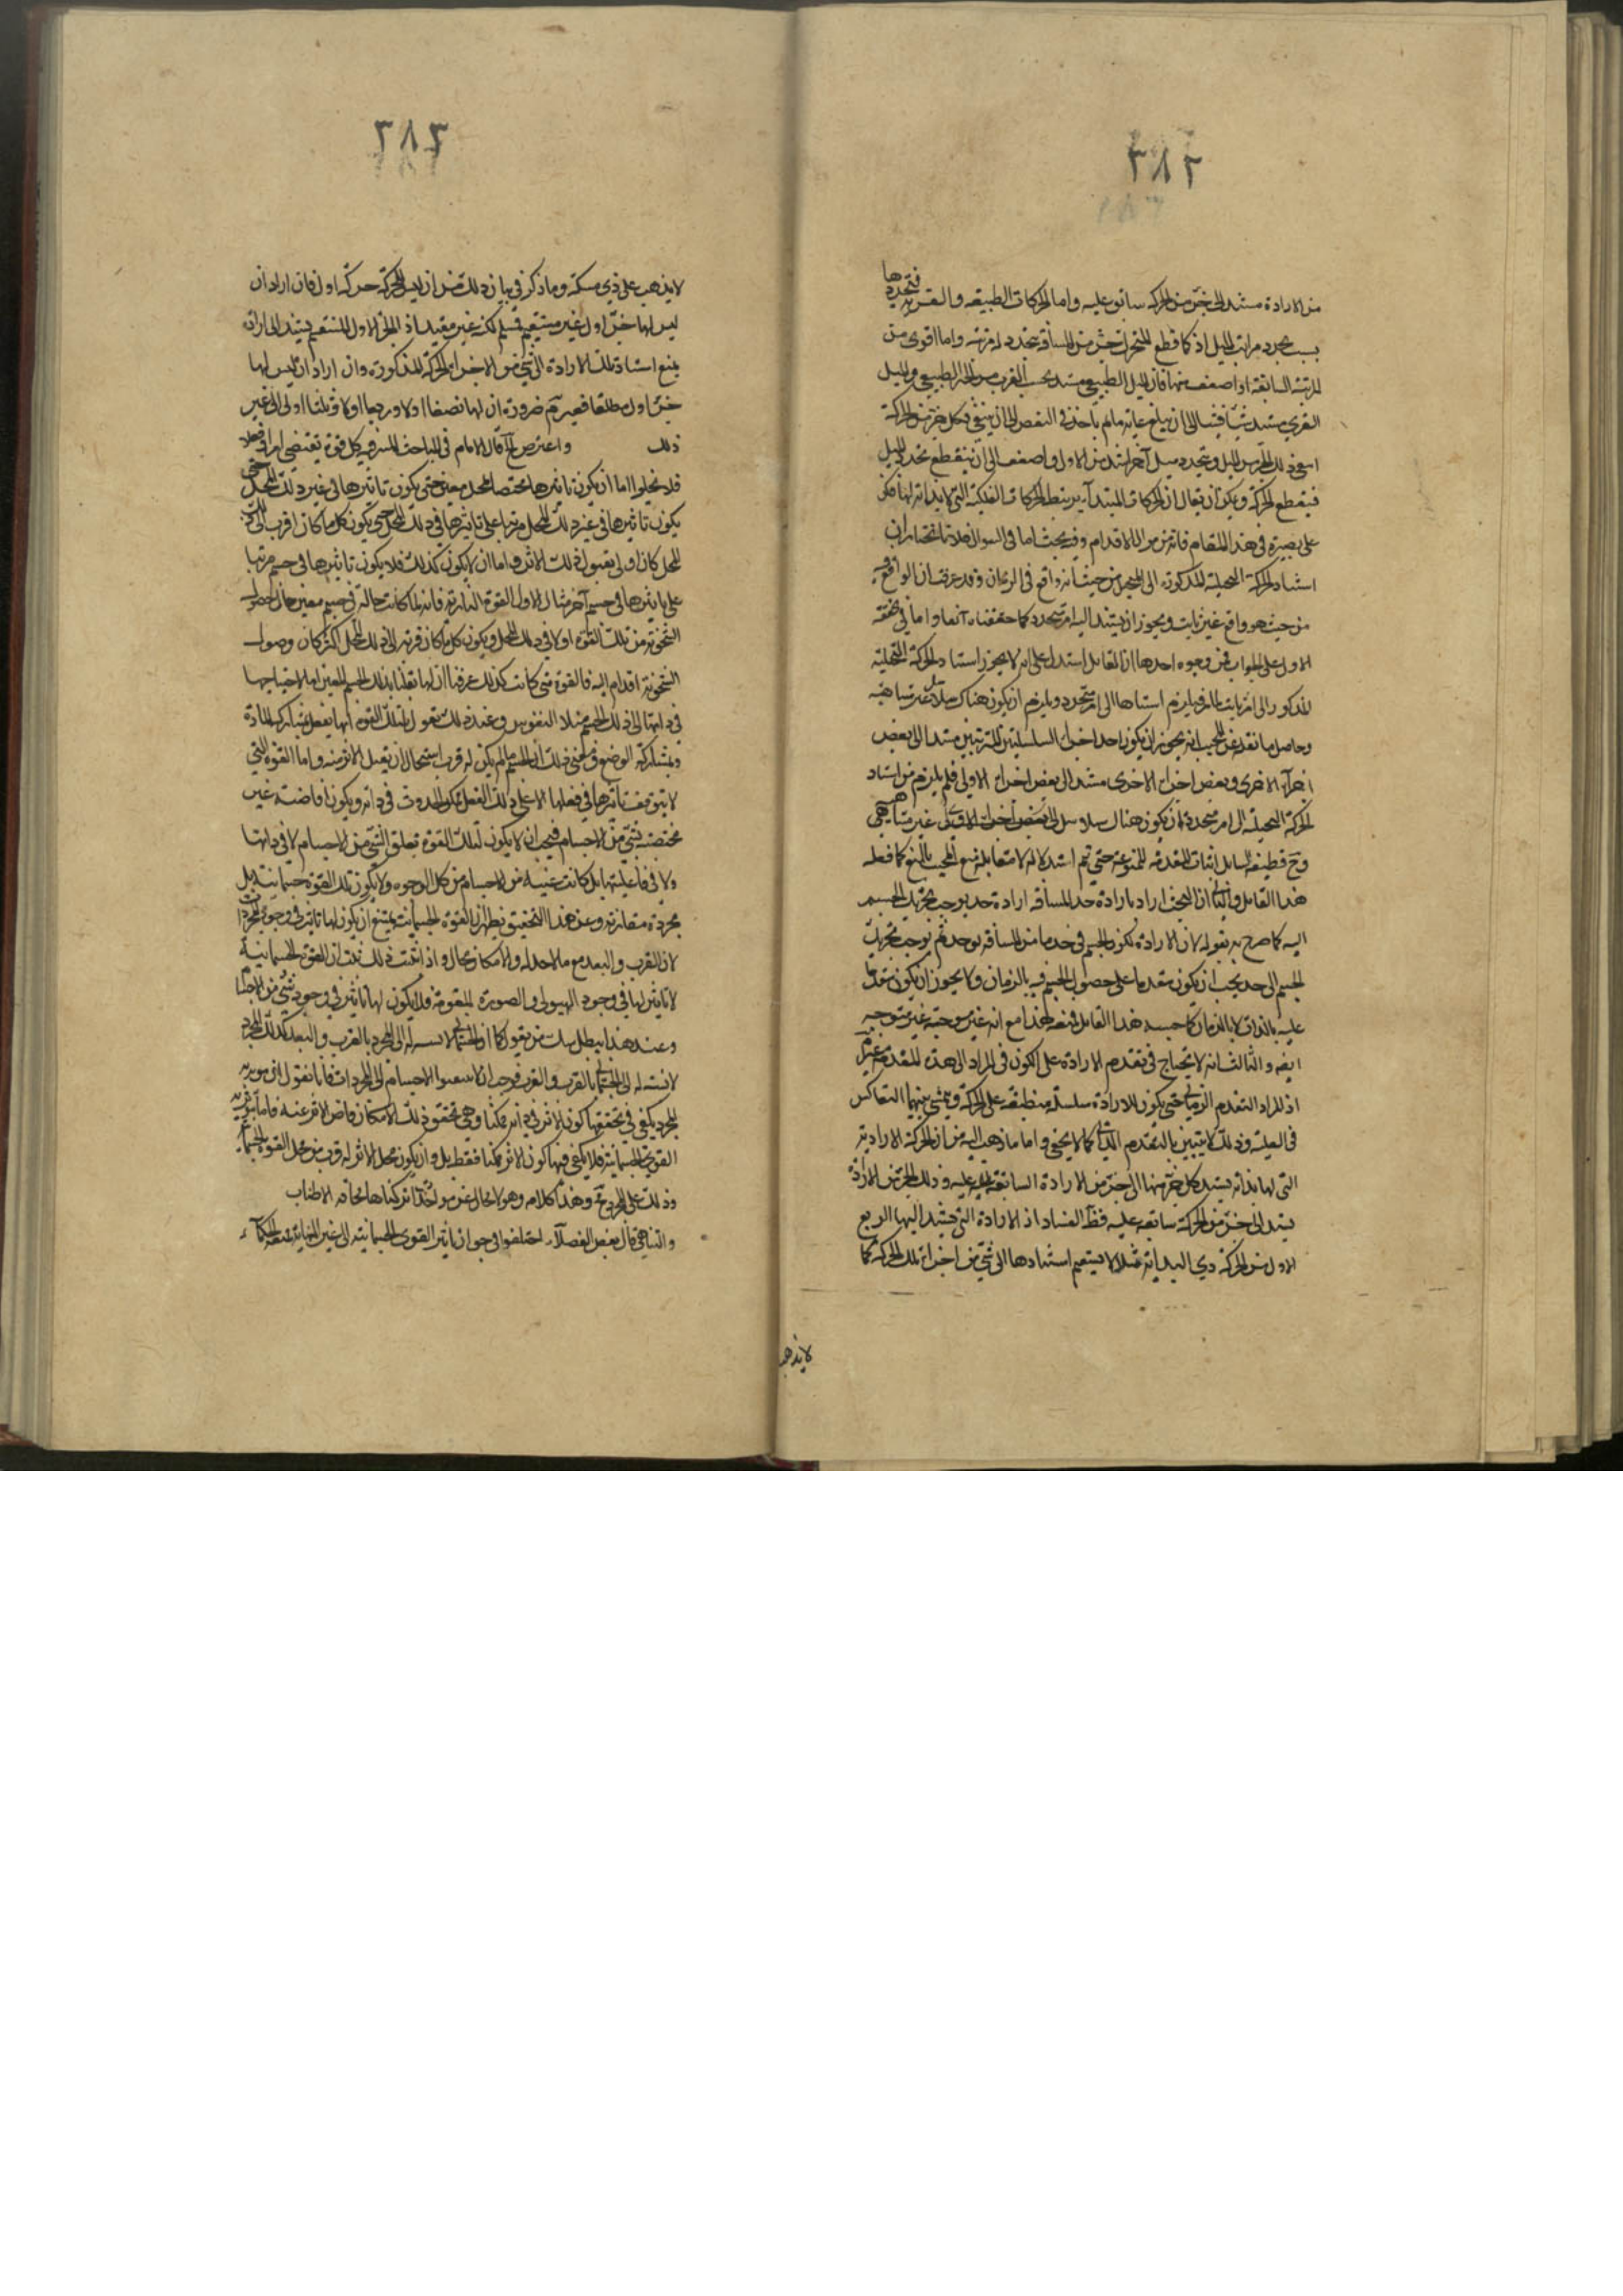 ٢٨٢
فتجددها
من الارادة مستند الى جزء من الحركة سابق عليه واما الحركات الطبيعية والقسرية
بسبب تجدد مراتب الميل اذ كلما قطع المتحرك جزء من المسافة تجدد له مرتبة واما اقوى من
المرتبة السابقة او اضعف منها فان الميل الطبيعي يشتد بحسب القرب من الحيز الطبيعي والميل
القسري يشتد شيئا فشيئا الى ان يبلغ غايته ما ثم ياخذ في النقص الى ان ينتفي فكل جزء من الحركة
ذلك الجزء من الميل ويتجدد ميل آخر اشد من الاول او اضعف الى ان ينقطع تجدد الميل
فينقطع الحركة ويمكن ان يقال ان الحركات المبتدأة يرتبط الحركات الفلكية التي لا بداية لها فكن
على بصيرة في هذا المقام فانه من مزال الاقدام وفيه بحث اما في السؤال فلانا نختار ان
استناد الحركة المتخيلة المذكورة الى المتخيل من حيث انه واقع في الزمان وقد عرفت ان الواقع فيه
من حيث هو واقع غير ثابت ويجوز ان يستند اليه امر متجدد كما حققناه آنفا واما في
الاول على الجواب فمن وجوه احدها ان القائل استدل على انه لا يجوز استناد الحركة المتخيلة
المذكور الى امر ثابت بل يلزم استنادها الى امر متجدد ويلزم ان يكون هناك سلاسل غير متناهية
وحاصل ما نقد عن المجيب انه يجوز ان يكون احد اجزاء السلسلتين المترتبتين مستندا الى بعض
اجزاء الاخرى وبعض اجزاء الاخرى مستند الى بعض اجزاء الاولى فلم يلزم من استناد
الحركة المتخيلة الى امر متجدد ان يكون هناك سلاسل الى بعض اجزاء الاولى غير متناهية
وح فطيفة السائل اثبات المقدمة الممنوعة حتى تم استدلاله لا مقابلة منع المجيب بالمنع كما فعله
هذا القائل وثانيا ان الشيخ اراد بارادة حد المسافة ارادة حد يوجب تحريك الجسم
اليه كما صرح به بقوله لان الارادة لكون الجسم في حد ما من المسافة يوجد ثم يوجب تحريك
الجسم الى حد يجب ان يكون متقدما على حصول الجسم فيه بالزمان ولا يجوز ان يكون متقدما
عليه بالذات لا بالزمان كما حسبه هذا القائل فمنعه لهذا مع انه غير موجه غير متوجه
ايضا والثالث انه لا يحتاج في تقدم الارادة على الكون في المراد الى هذه المقدمة
اذ المراد التقدم الزماني حتى يكون للارادة سلسلة منطبقة على الحركة ويتمشى بينهما التعاكس
في العلية وذلك لا يتبين بالتقدم الذاتي كما لا يخفى واما ما ذهب اليه من ان الحركة الارادية
التي لها بداية يستند كل جزء منها الى جزء من الارادة السابقة عليه وذلك الجزء من الارادة
يستند الى جزء من الحركة سابقة عليه فظ الفساد اذ الارادة التي يستند اليها الربع
الاول من الحركة ذي البداية مثلا لا يستقيم استنادها الى شيء من اجزاء تلك الحركة كما
لا يذهب
٢٨٣
لا يذهب على ذي مسكة وما ذكر في بيان ذلك من ان ليس للحركة حركة اول فان اراد ان
ليس لها جزء اول غير منقسم فمسلم لكنه غير مفيد اذ الجزء الاول المنقسم يستند الى ارادة
يمتنع استناد تلك الارادة الى شيء من الاجزاء الحركة المذكورة وان اراد ان ليس لها
جزء اول مطلقا فغير تم ضرورة ان لها نصفا اولا وربعا اولا وثلثا اولا الى غير
ذلك واعترض آ قال الامام في المباحث المشرقية كل قوة تقتضي امرا وفعلا
فلا يخلو اما ان يكون تاثيرها مختصا بمحل معين حتى يكون تاثيرها في غير ذلك المحل
يكون تاثيرها في غير ذلك المحل مرتبا على تاثيرها في ذلك المحل حتى يكون كل ما كان اقرب الى ذلك
المحل كان اولى بقبول ذلك الاثر واما ان لا يكون كذلك فلا يكون تاثيرها في جسم مرتبا
على تاثيرها في جسم آخر مثال الاول القوة النارية فانها لما كانت حالة في جسم معين حال حصول
السخونة من تلك القوة اولا في ذلك المحل ويكون كل ما كان قربه الى ذلك المحل اكثر كان وصول
السخونة اقدم اليه فالقوة متى كانت كذلك عرفنا ان لها تعلقا بذلك الجسم المعين اما لاحتياجها
في ذاتها الى ذلك الجسم مثلا النفوس وعند ذلك نقول لتلك القوة انها يفعل بمشاركة المادة
وبمشاركة الوضع ومعنى ذلك ان الجسم ما لم يكن له قرب استحال ان يقبل الاثر منه واما القوة التي
لا يتوقف تاثيرها في فعلها الا على ذلك الفعل ممكن الحدوث في ذاته ويكون افاضته غير
مختصة بشيء من الاجسام فيجب ان لا يكون لتلك القوة تعلق الشيء من الاجسام لا في ذاتها
ولا في فاعليتها بل كانت غنية من الاجسام من كل الوجوه ولا يكون تلك القوة جسمانية بل
مجردة مفارقة وعند هذا التحقيق يظهر ان القوة الجسمانية يمتنع ان يكون لها تاثير في وجود المجردات
لان القرب والبعد مع ما لاحد له ولا مكان محال واذا ثبت ذلك ثبت ان القوى الجسمانية
لا تاثير لها في وجود الهيولى والصورة المقومة فلا يكون لها تاثير في وجود شيء من الاجسام
وعند هذا يبطل شك من يقول كما ان الجسم لا نسبة له الى المجرد بالقرب والبعد كذلك المجرد
لا نسبة له الى الجسم بالقرب والبعد فوجب ان لا الاجسام الى المجردات فانا نقول انه
المجرد يكفي في تحققها كون الاثر في ذاته ممكنا ومتى تحقق ذلك الامكان فاض الاثر عنه فاما تاثير
القوى الجسمانية فلا يكفي فيها كون الاثر ممكنا فقط بل وان يكون محل الاثر له قرب من محل القوة الجسمانية
وذلك على المجرد مح وهذا كلامه وهو لا يخلو عن تركناها مخافة الاطناب
والتناهي قال بعض الفضلاء اختلفوا في جواز تاثير القوى الجسمانية الى غير النهاية الحكماء